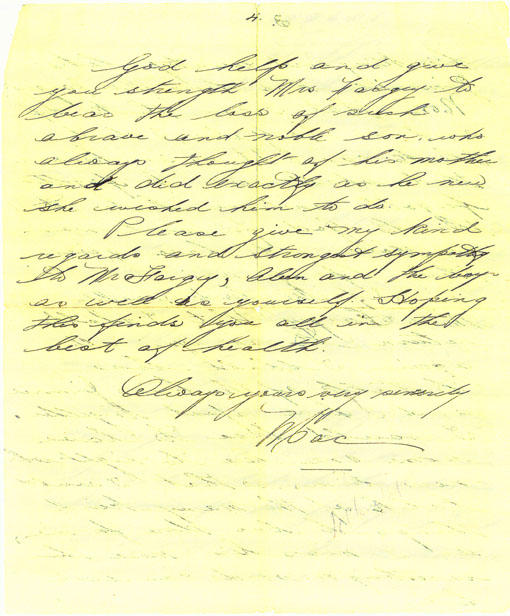 4.
God help and give
you strength Mrs Fargey to
bear the loss of such
a brave and noble son who
always thought of his mother
and did exactly as he new
she wished him to do
Please give my kind
regards and strongest sympathy
to Mr Fargey, Alen and the boys
as well as yourself. Hoping
this finds you all in the
best of health.
Always yours very sincerely
Mac